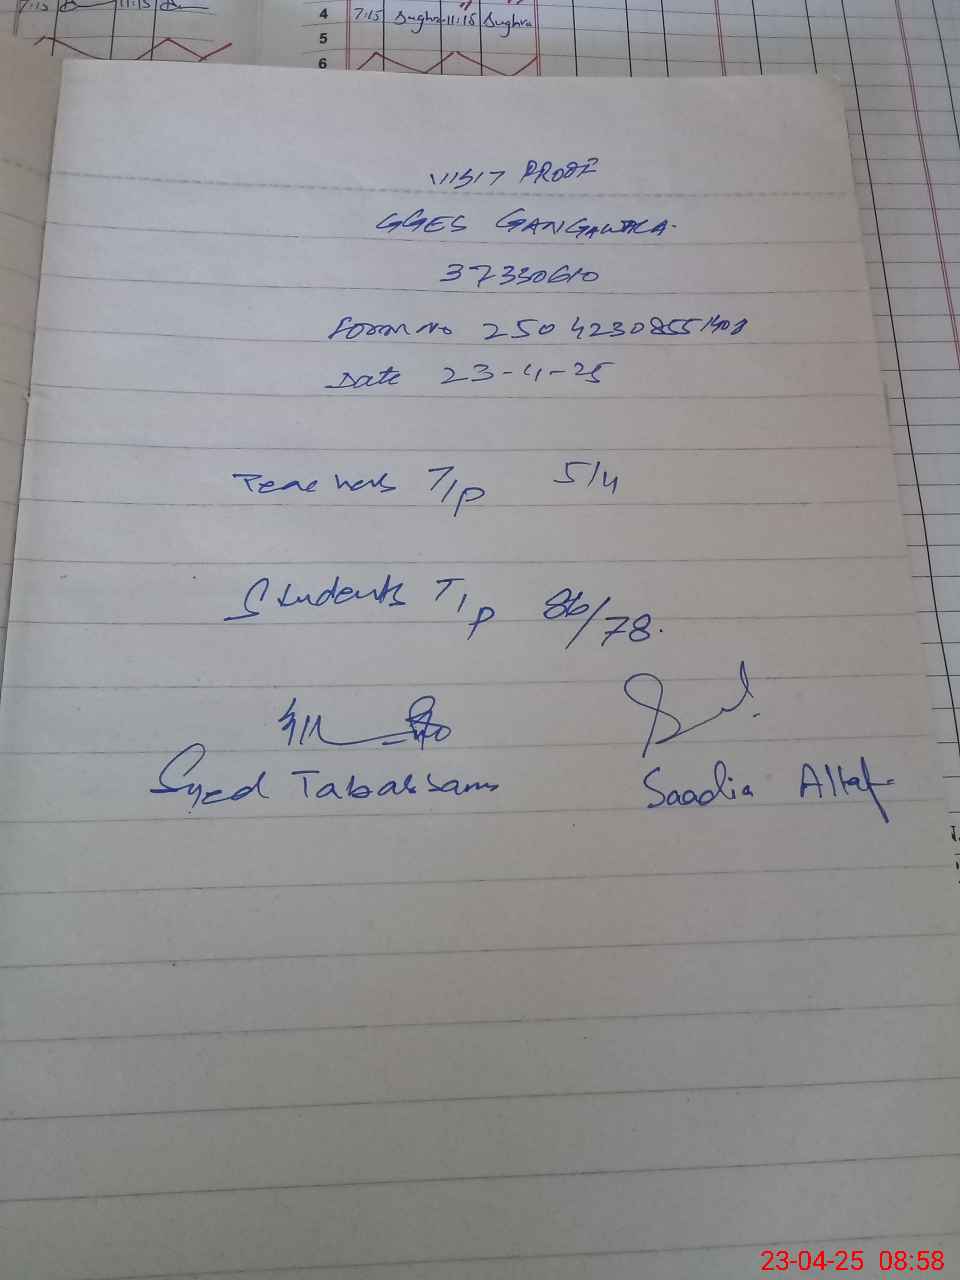 7:15 11:15
4 7:15 Sughra 11:15 Sughra
5
6
VISIT PROOF
GGES GANGAWALA.
37330610
Form No 25042308551408
Date 23-4-25
Teachers T/P 5/4
Students T/P 86/78.
Syed Tabassam
Saadia Altaf
23-04-25 08:58